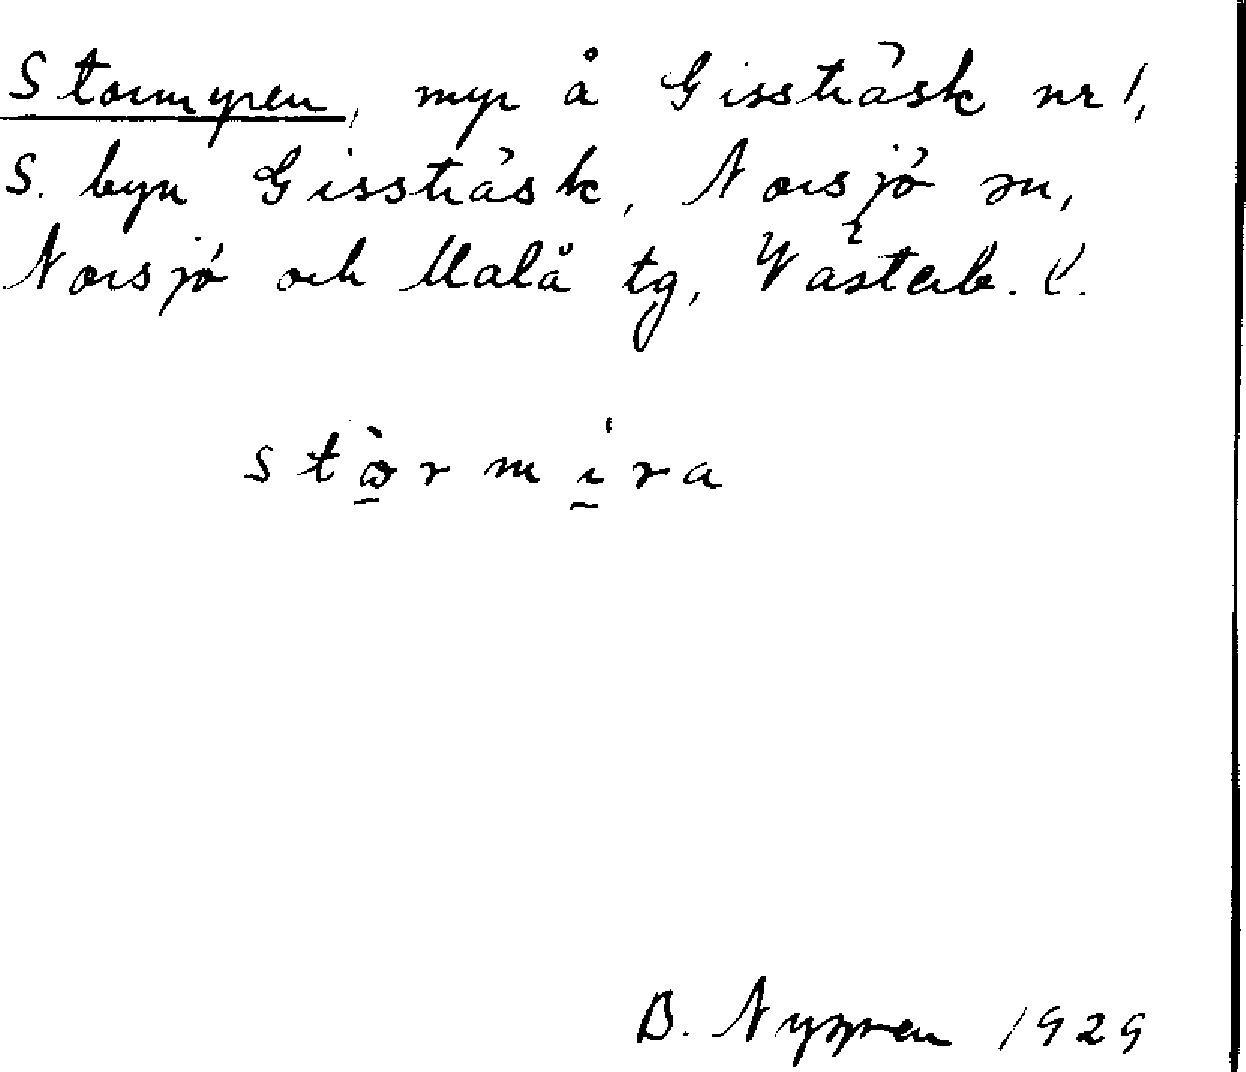 Stormyren, myr å Gissträsk nr 1,
S. byn Gissträsk, Norsjö sn,
Norsjö och Malå tg, Västerb. l.
stòrmíra
B. Nygren 1929